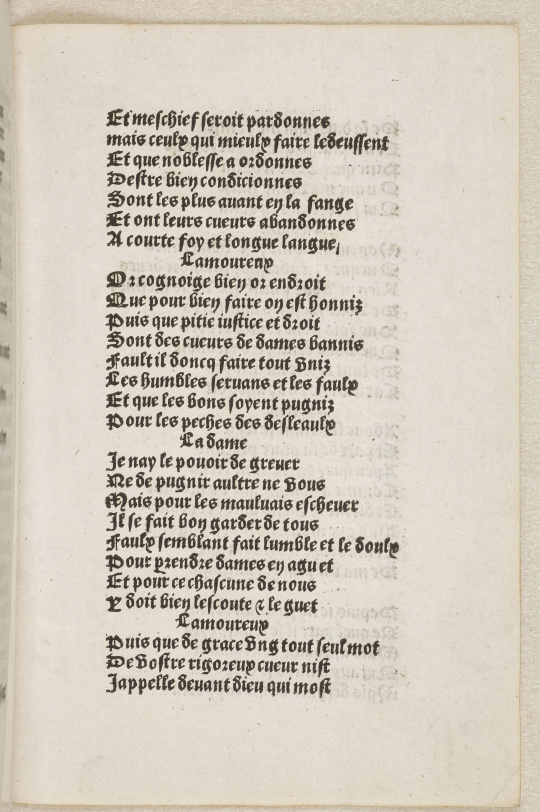 Et meschief seroit pardonnes
mais ceulx qui mieulx faire le deussent
Et que noblesse a ordonnes
Destre bien condicionnes
Sont les plus auant en la fange
Et ont leurs cueurs abandonnes
A courte foy et longue langue,
Lamoureux
Or cognoige bien or endroit
Que pour bien faire on est honniz
Puis que pitie iustice et droit
Sont des cueurs de dames bannis
Fault il doncq faire tout vniz
Les humbles seruans et les faulx
Et que les bons soyent pugniz
Pour les peches des desleaulx
La dame
Je nay le pouoir de greuer
Ne de pugnir aultre ne vous
Mais pour les mauluais escheuer
Il se fait bon garder de tous
Faulx semblant fait lumble et le doulx
Pour prendre dames en aguet
Et pour ce chascune de nous
Y doit bien lescoute ⁊ le guet
Lamoureux
Puis que de grace vng tout seul mot
De vostre rigoreux cueur nist
Jappelle deuant dieu qui most